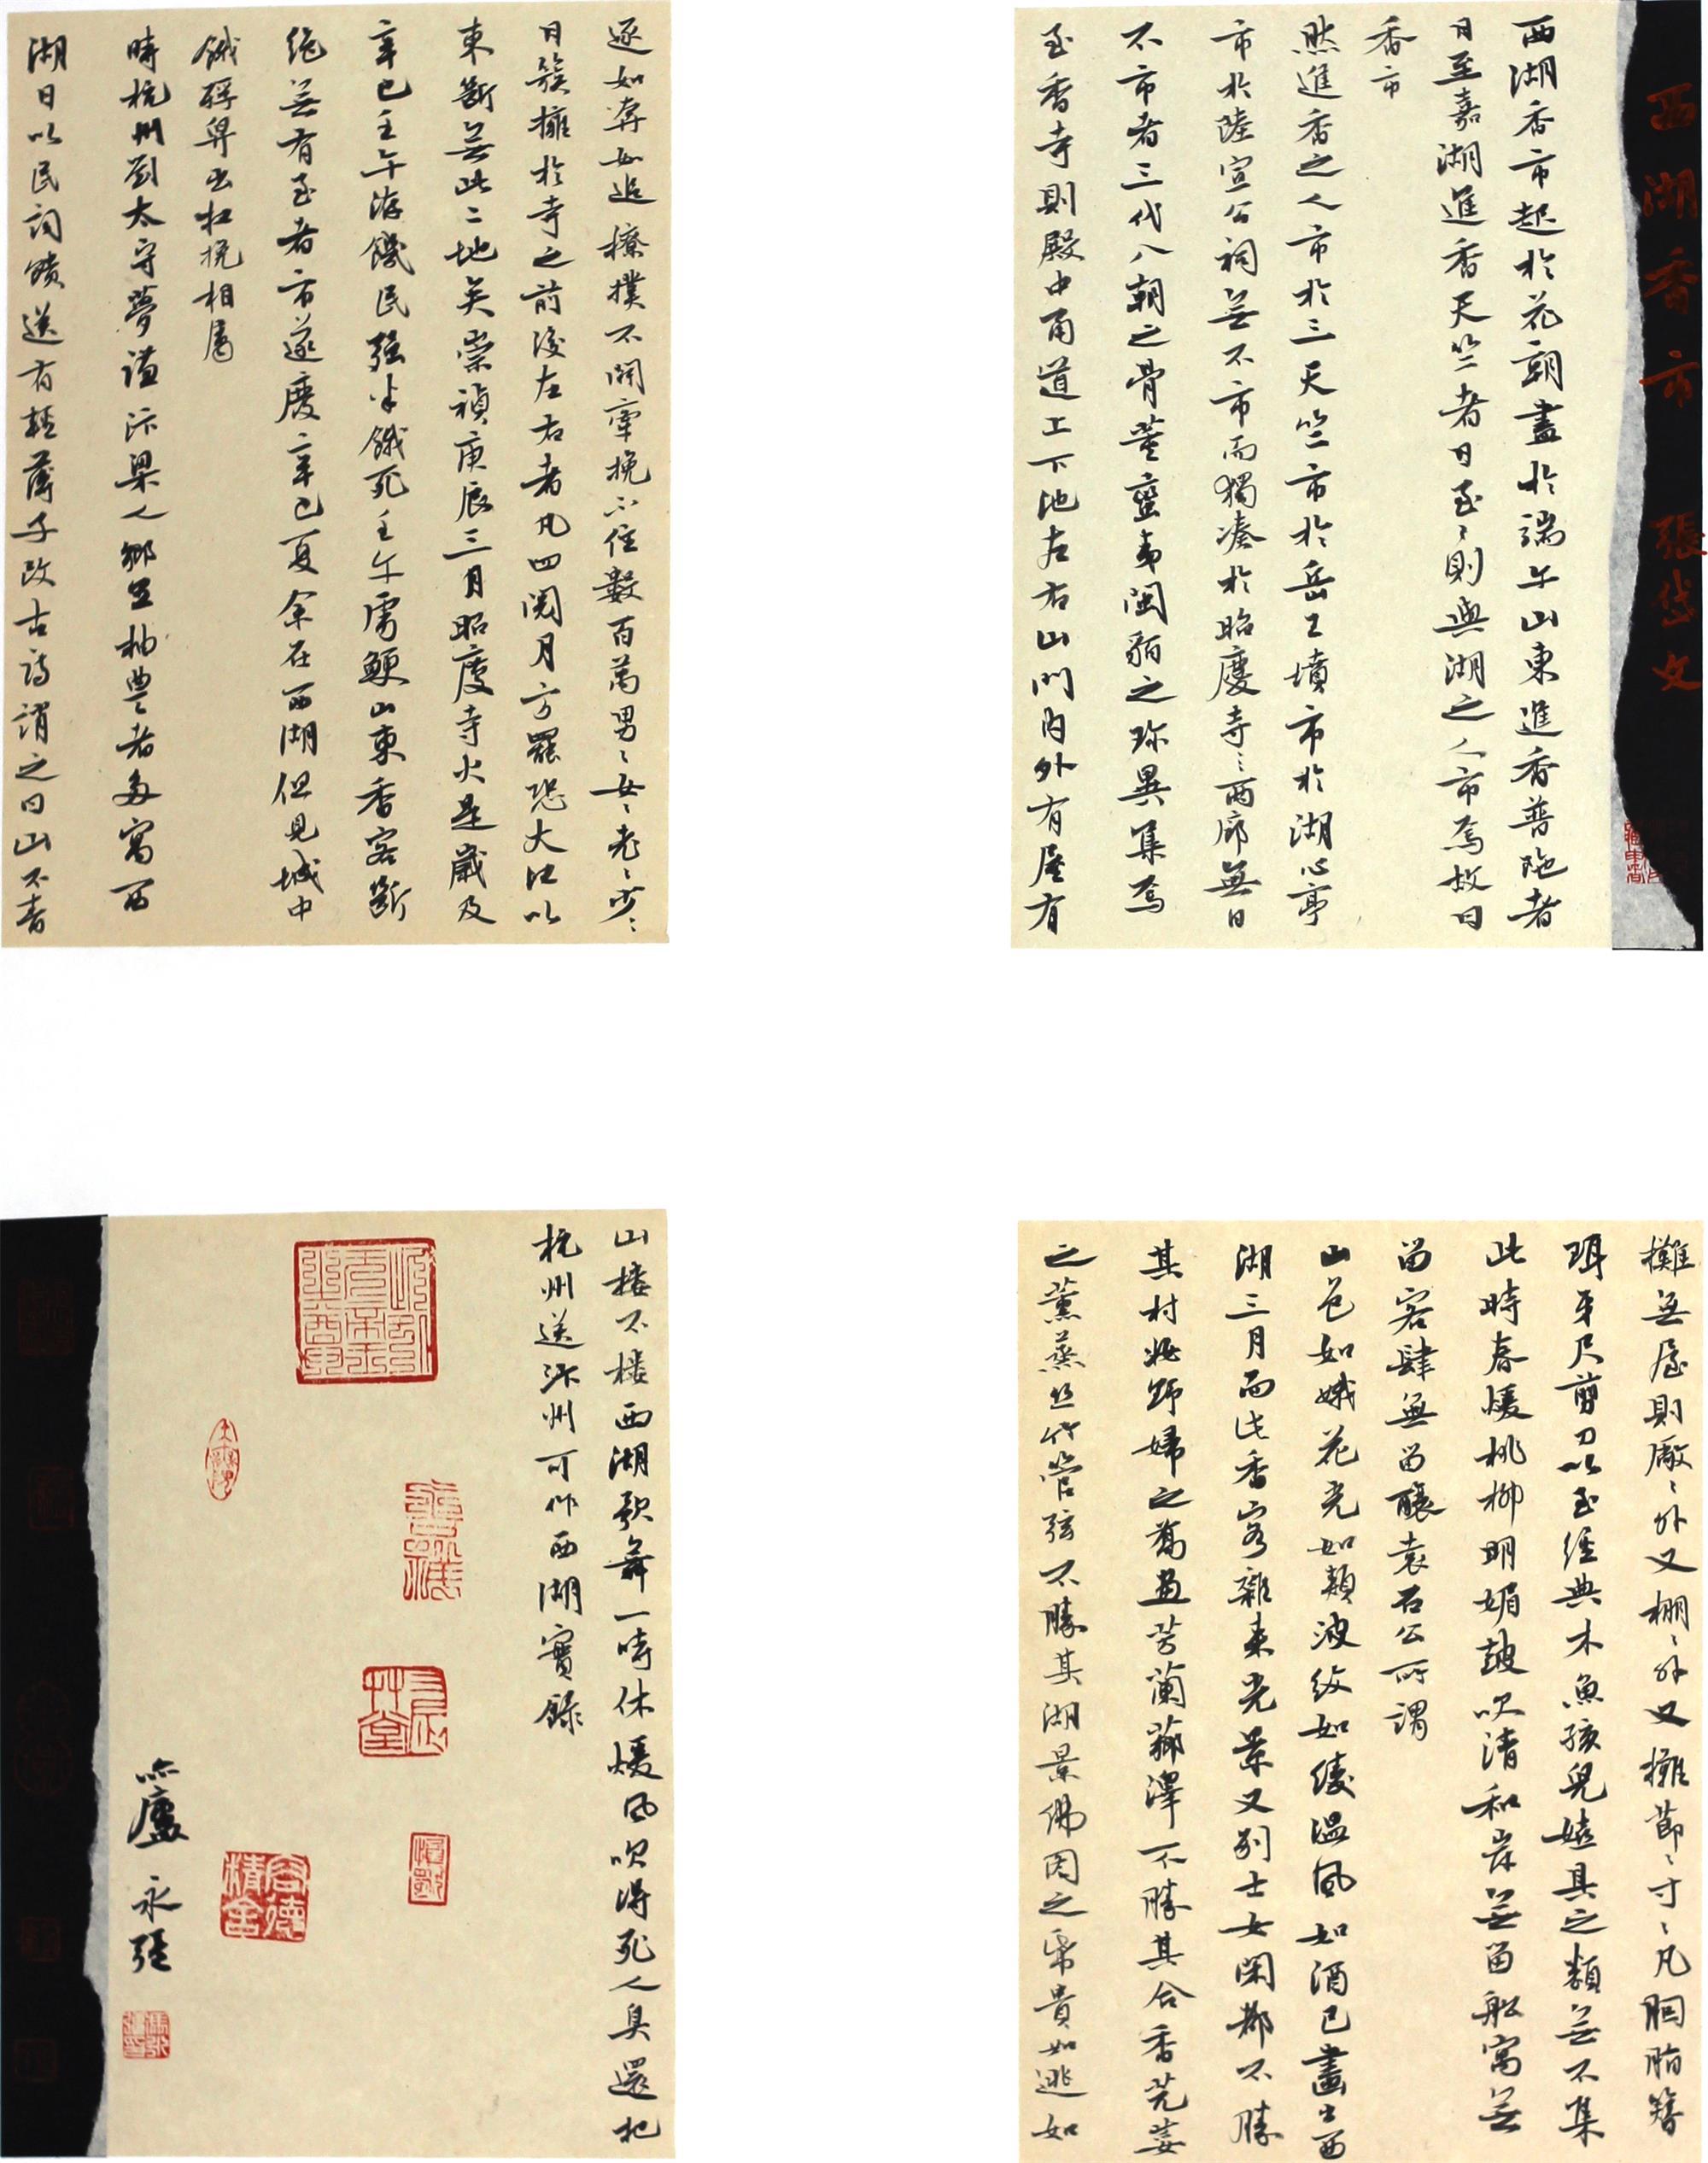 西湖香市 張岱文
西湖香市起於花朝盡於端午山東進香普陀者
日至嘉湖進香天竺者日至〻則與湖之人市焉故曰
香市
然進香之人市於三天竺市於岳王墳市於湖心亭
市於陸宣公祠無不市而獨湊於昭慶寺〻兩廊無日
不市者三代八朝之骨董蠻夷閩貊之珎異集焉
至香寺則殿中甬道上下池左右山門内外有屋有
攤無屋則廠〻外又棚〻外又攤節〻寸〻凡胭脂簪
珥牙尺剪刀以至經典木魚孩兒嬉具之類無不集
此時春煖桃柳明媚鼓吹清和岸無留船寓無
留客肆無留釀袁石公所謂
山色如娥花光如頰波紋如綾溫風如酒已畫出西
湖三月而此香客雜來光景又別士女閑都不勝
其村妝野婦之喬畫芳蘭薌澤不勝其合香芫荽
之薰蒸絲竹管弦不勝其湖景佛因之帋貴如逃如
逐如奔如追撩撲不開牽挽不住數百萬男〻女〻老〻少〻
日簇擁於寺之前後左右者凡四閱月方罷恐大江以
東斷無此二地矣崇禎庚辰三月昭慶寺火是歲及
辛巳壬午洊饑民强半餓死壬午虜鯁山東香客斷
絕無有至者市遂廢辛巳夏余在西湖但見城中
餓殍舁出扛挽相屬
時杭州劉太守夢謙汴梁人鄉里抽豐者多寓西
湖日以民詞饋送有輕薄子改古詩誚之曰山不青
山樓不樓西湖歌舞一時休煖風吹得死人臭還把
杭州送汴州可作西湖實錄
廬 永强
容德精舍